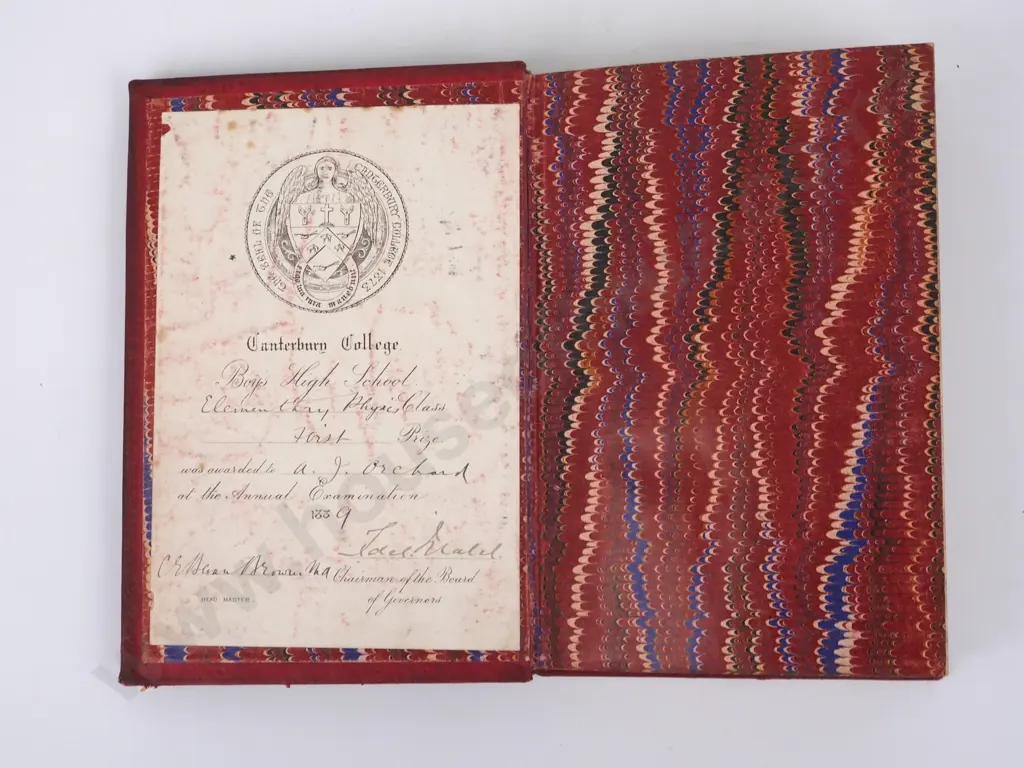 THE SEAL OF THE CANTERBURY COLLEGE 1873
ergo tua rura manebunt
Canterbury College.
Boys High School
Elementary Physis Class
First Prize
was awarded to A. J. Orchard
at the Annual Examination
1889
C E Bevan Brown MA
Chairman of the Board
HEAD MASTER.
of Governors